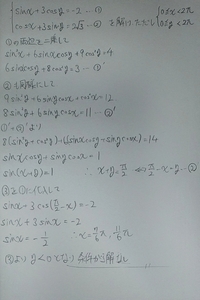 sinx + 3cosy = -2 —① 0≦x<2π
cosx + 3siny = 2√3 —② を解け、ただし 0≦y<2π
①の両辺を二乗して
sin²x + 6sinxcosy + 9cos²y = 4
6sinxcosy + 8cos²y = 3 —①'
②も同様にして
9sin²y + 6sinycosx + cos²x = 12
8sin²y + 6sinycosx = 11 —②'
①'+②'より
8(sin²y + cos²y) + 6(sinxcosy + sinycosx) = 14
sinxcosy + sinycosx = -1
sin(x+y) = 1 ∴ x+y = π/2 ⇔ π/2 - x = y —③
③を①に代入して
sinx + 3cos(π/2 - x) = -2
sinx + 3sinx = -2
sinx = -1/2 ∴ x = 7/6π, 11/6π
③より y<0 となり